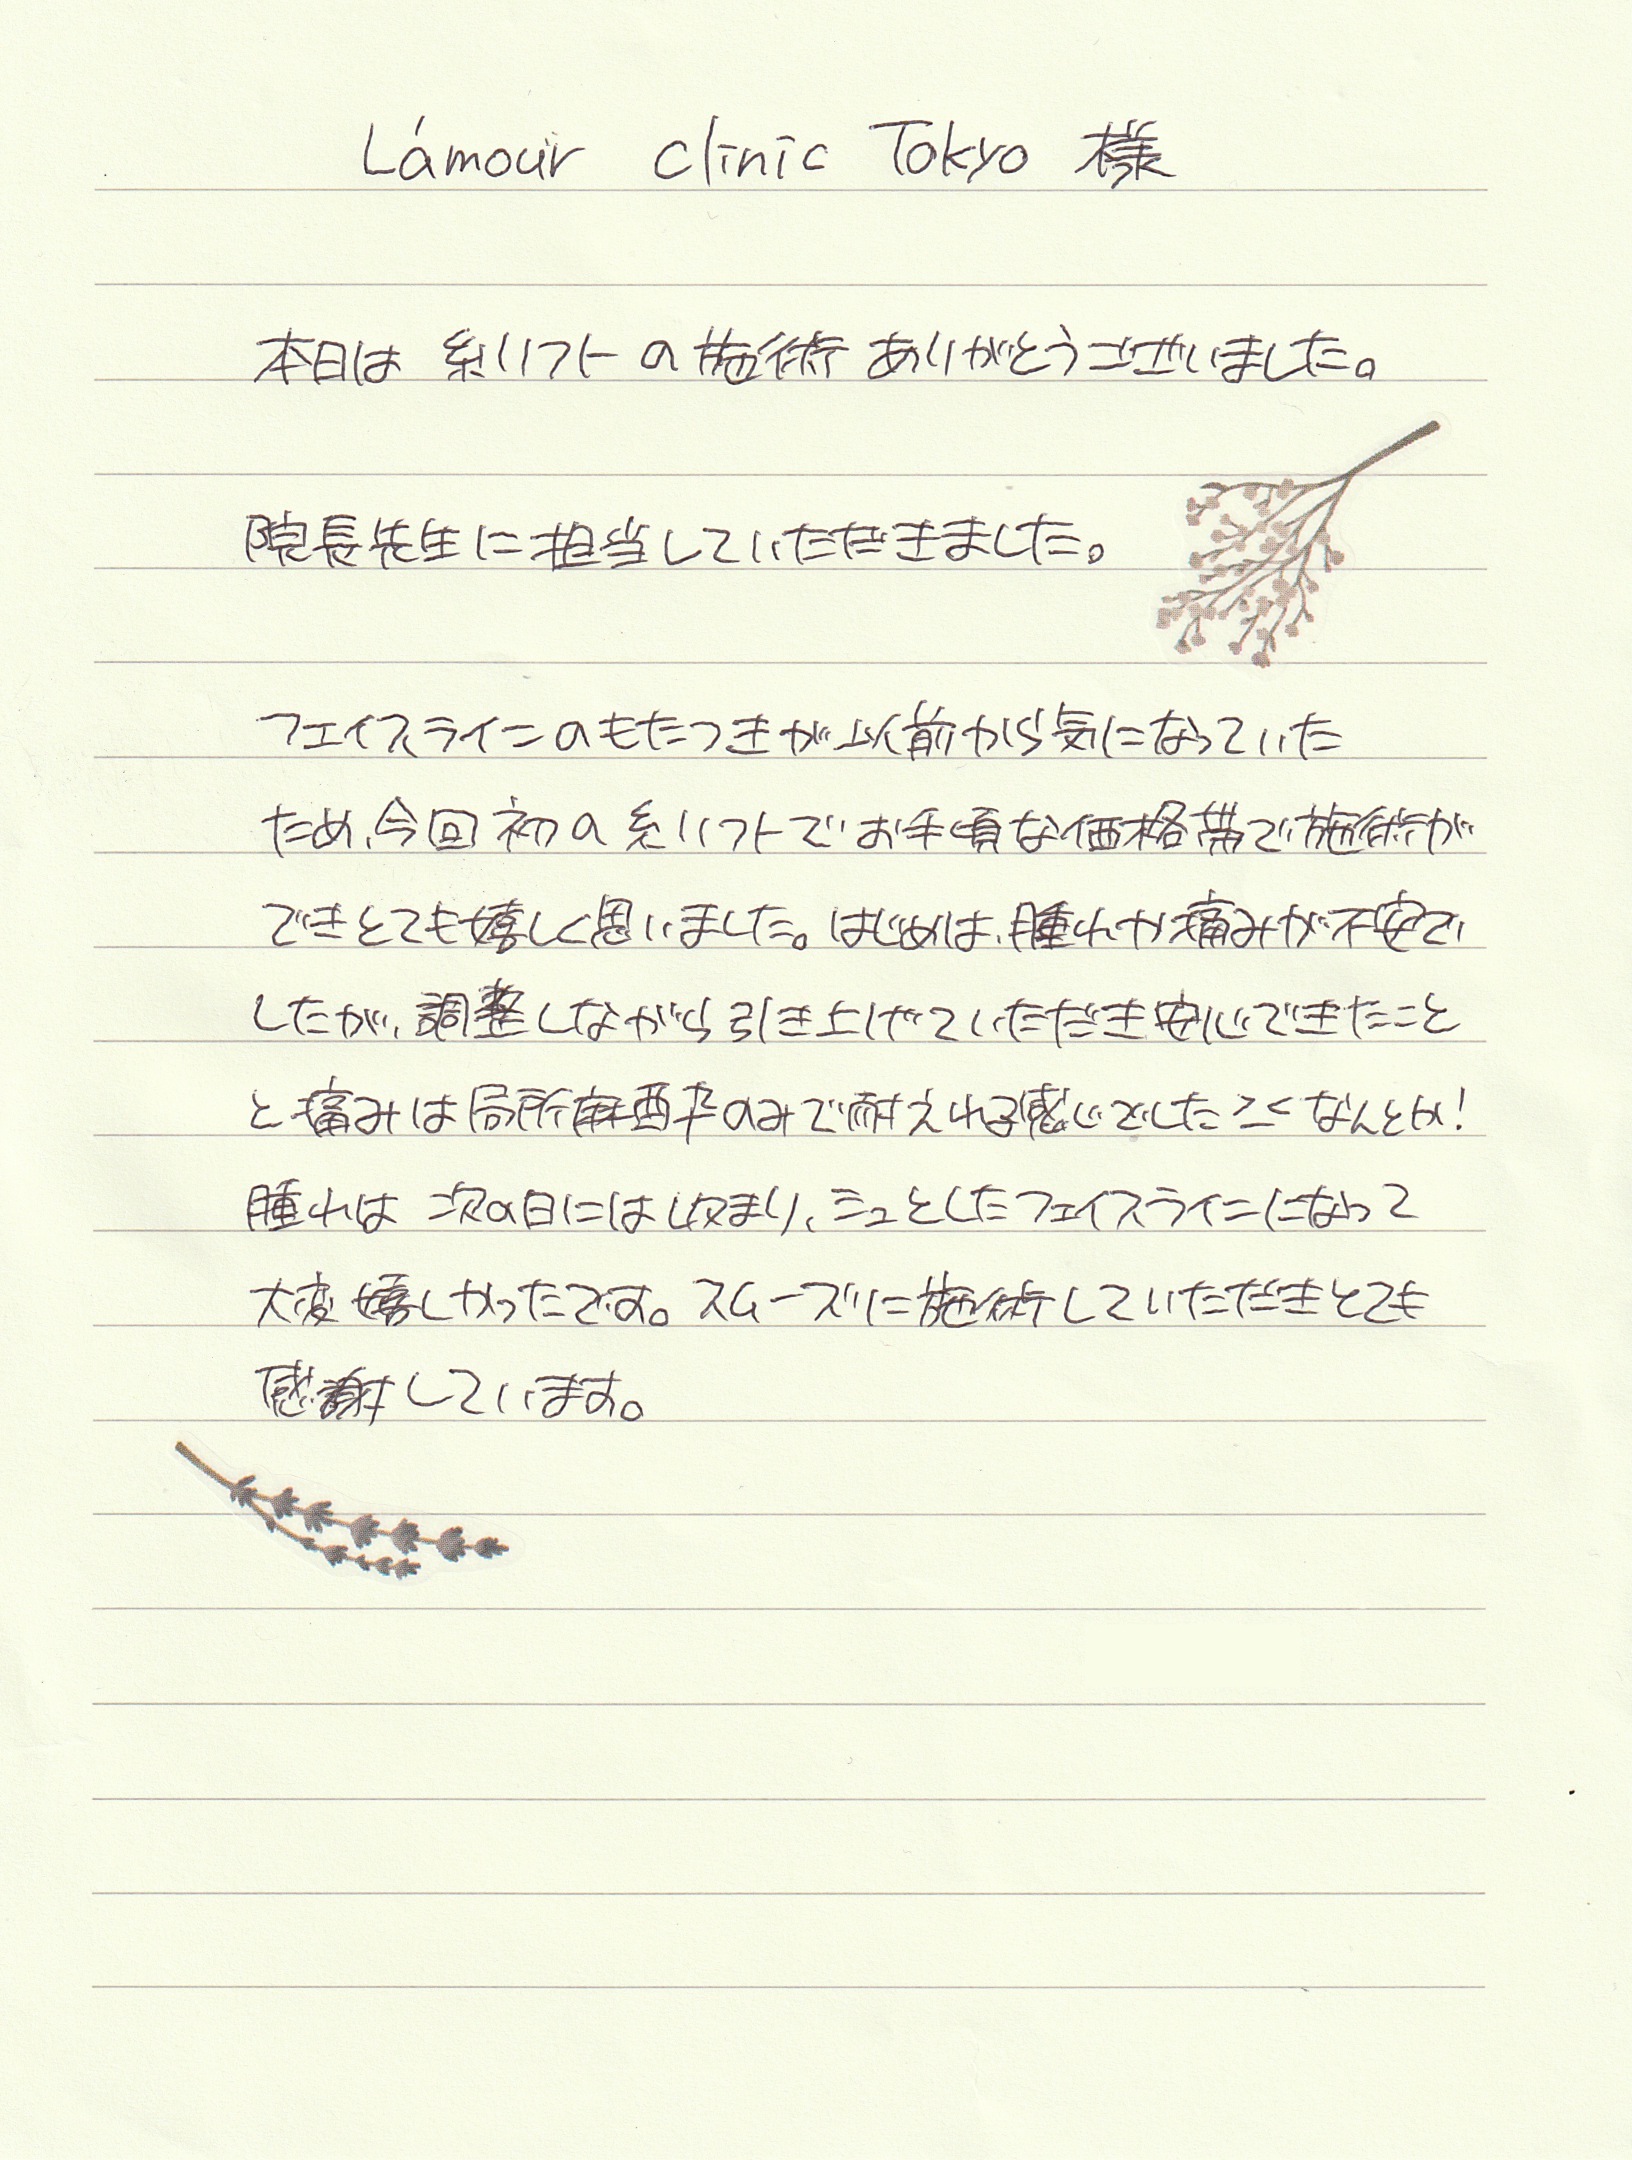 L'amour clinic Tokyo 様
本日は 糸リフトの施術 ありがとうございました。
院長先生に担当していただきました。
フェイスラインのもたつきが以前から気になっていた
ため、今回初の糸リフトでお手頃な価格帯で施術が
できとても嬉しく思いました。はじめは、腫れか痛みが不安で
したが、調整しながら引き上げていただき安心できたこと
と痛みは局所麻酔のみで耐えれる感じでした なんとか!
腫れは 次の日には収まり、シュとしたフェイスラインになって
大変嬉しかったです。スムーズに施術していただきとても
感謝しています。